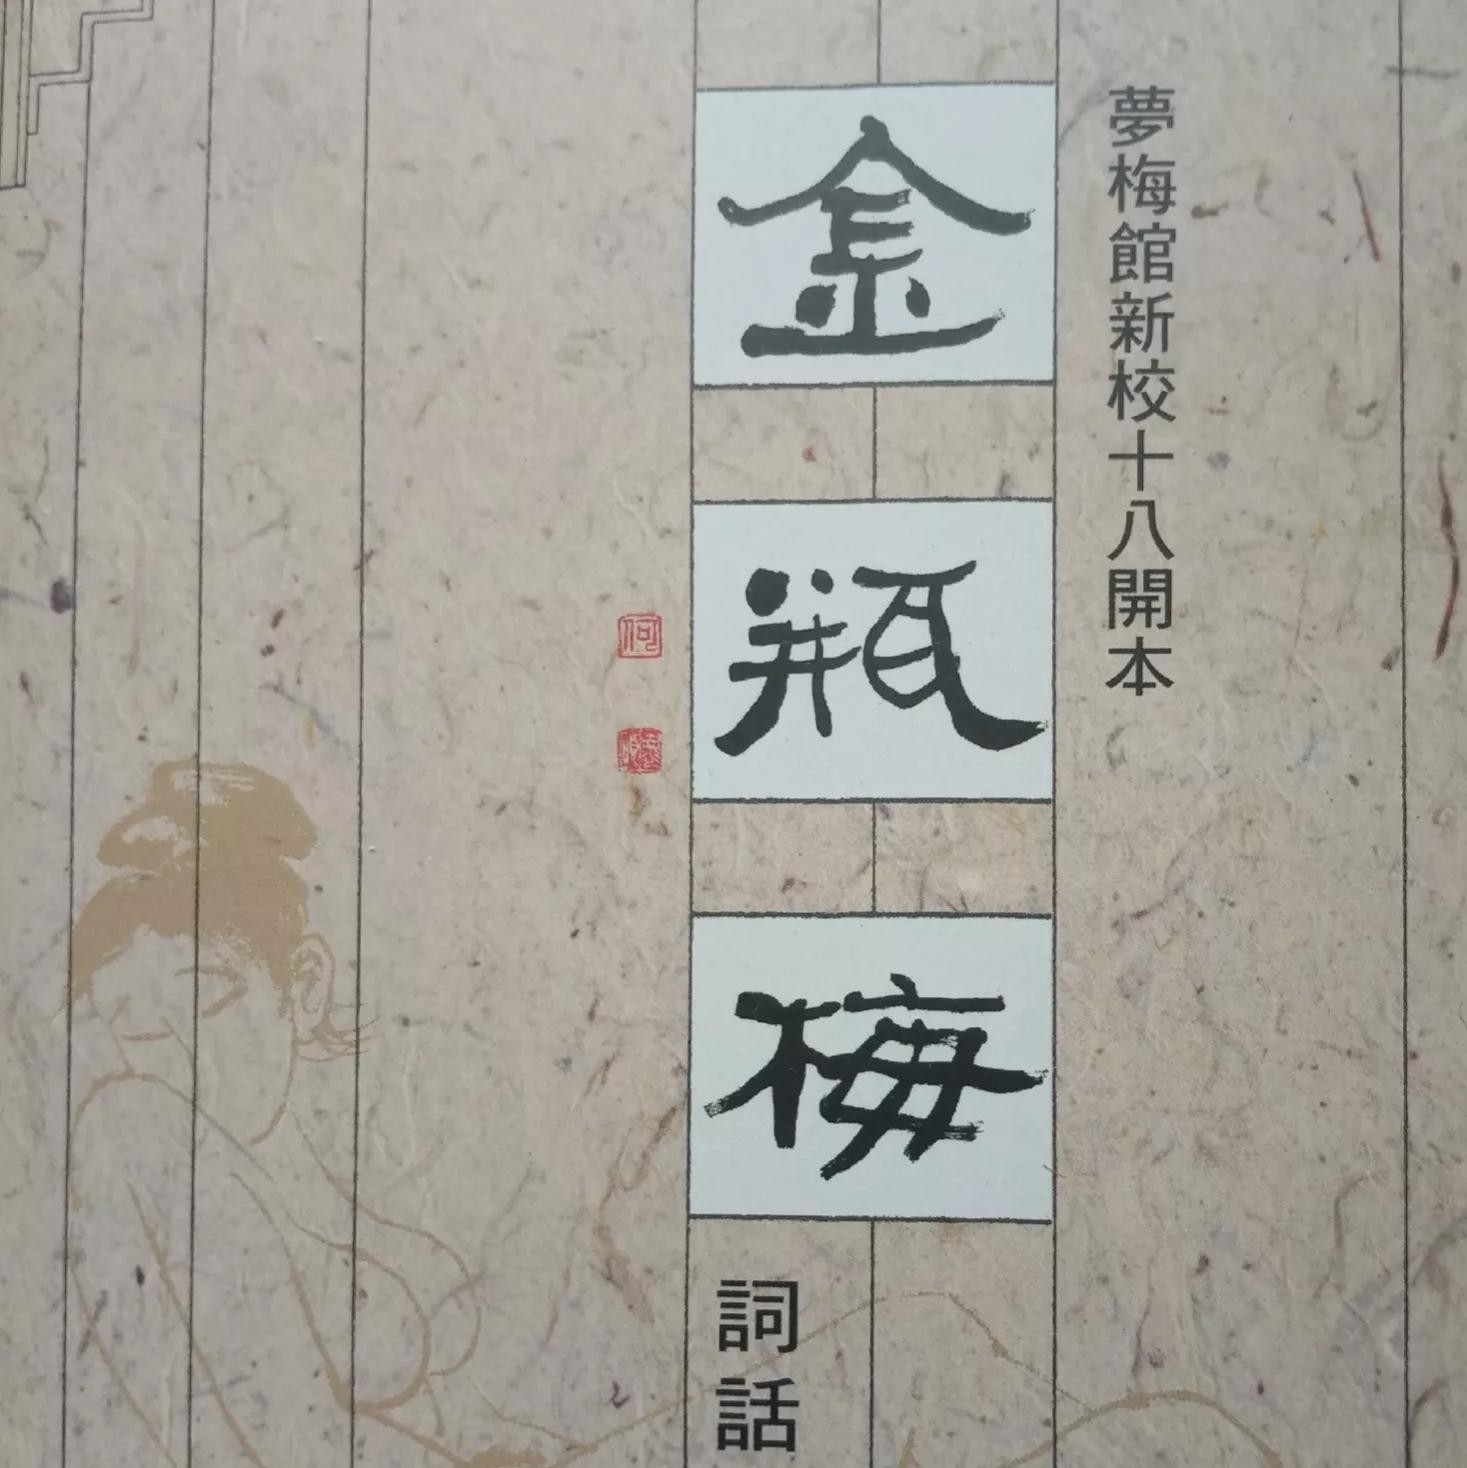 夢梅館新校十八開本
金瓶梅
詞話
何